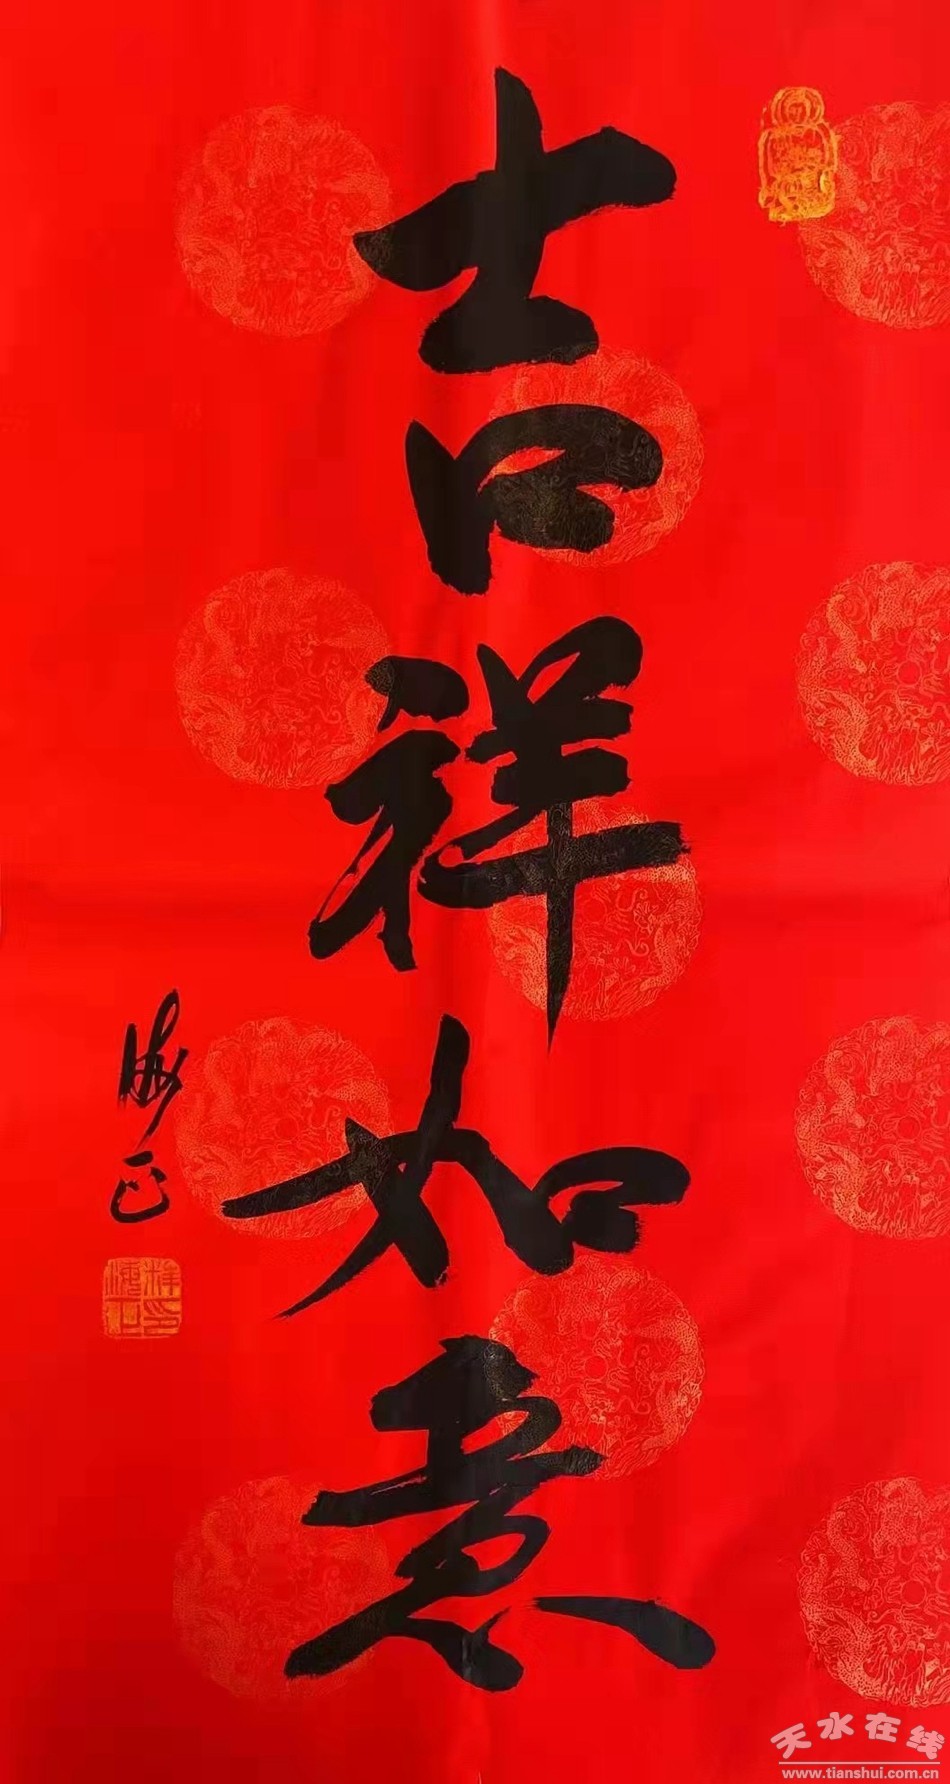 吉祥如意
海正
天水在线
www.tianshui.com.cn